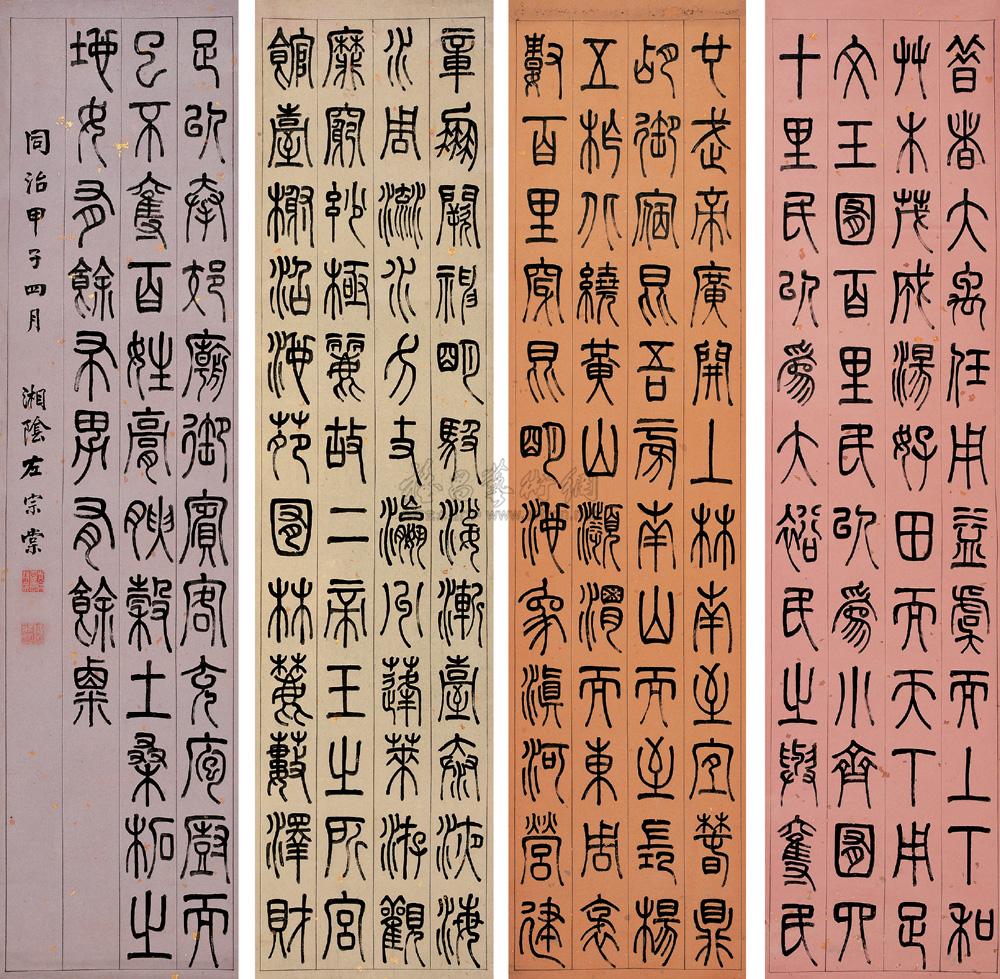 昔者大禹任用益虞而上下和
艸木茂成湯好田而天下用足
文王囿百里民以爲小齊囿四
十里民以爲大裕民之與奪民
也武帝廣開上林南至宜春鼎
胡御宿昆吾旁南山而至長楊
五柞北繞黃山瀕渭而東周袤
數百里穿昆明池象滇河營建
章鳳闕神明馺娑漸臺泰液海
水周流水方丈瀛州蓬萊游觀
靡窮妙極麗故二帝王之所宮
館臺榭沼池苑囿林麓藪澤財
足以奉郊廟御賓客充庖廚而
已不奪百姓膏腴穀土桑柘之
地女有餘布男有餘粟
同治甲子四月 湘陰左宗棠